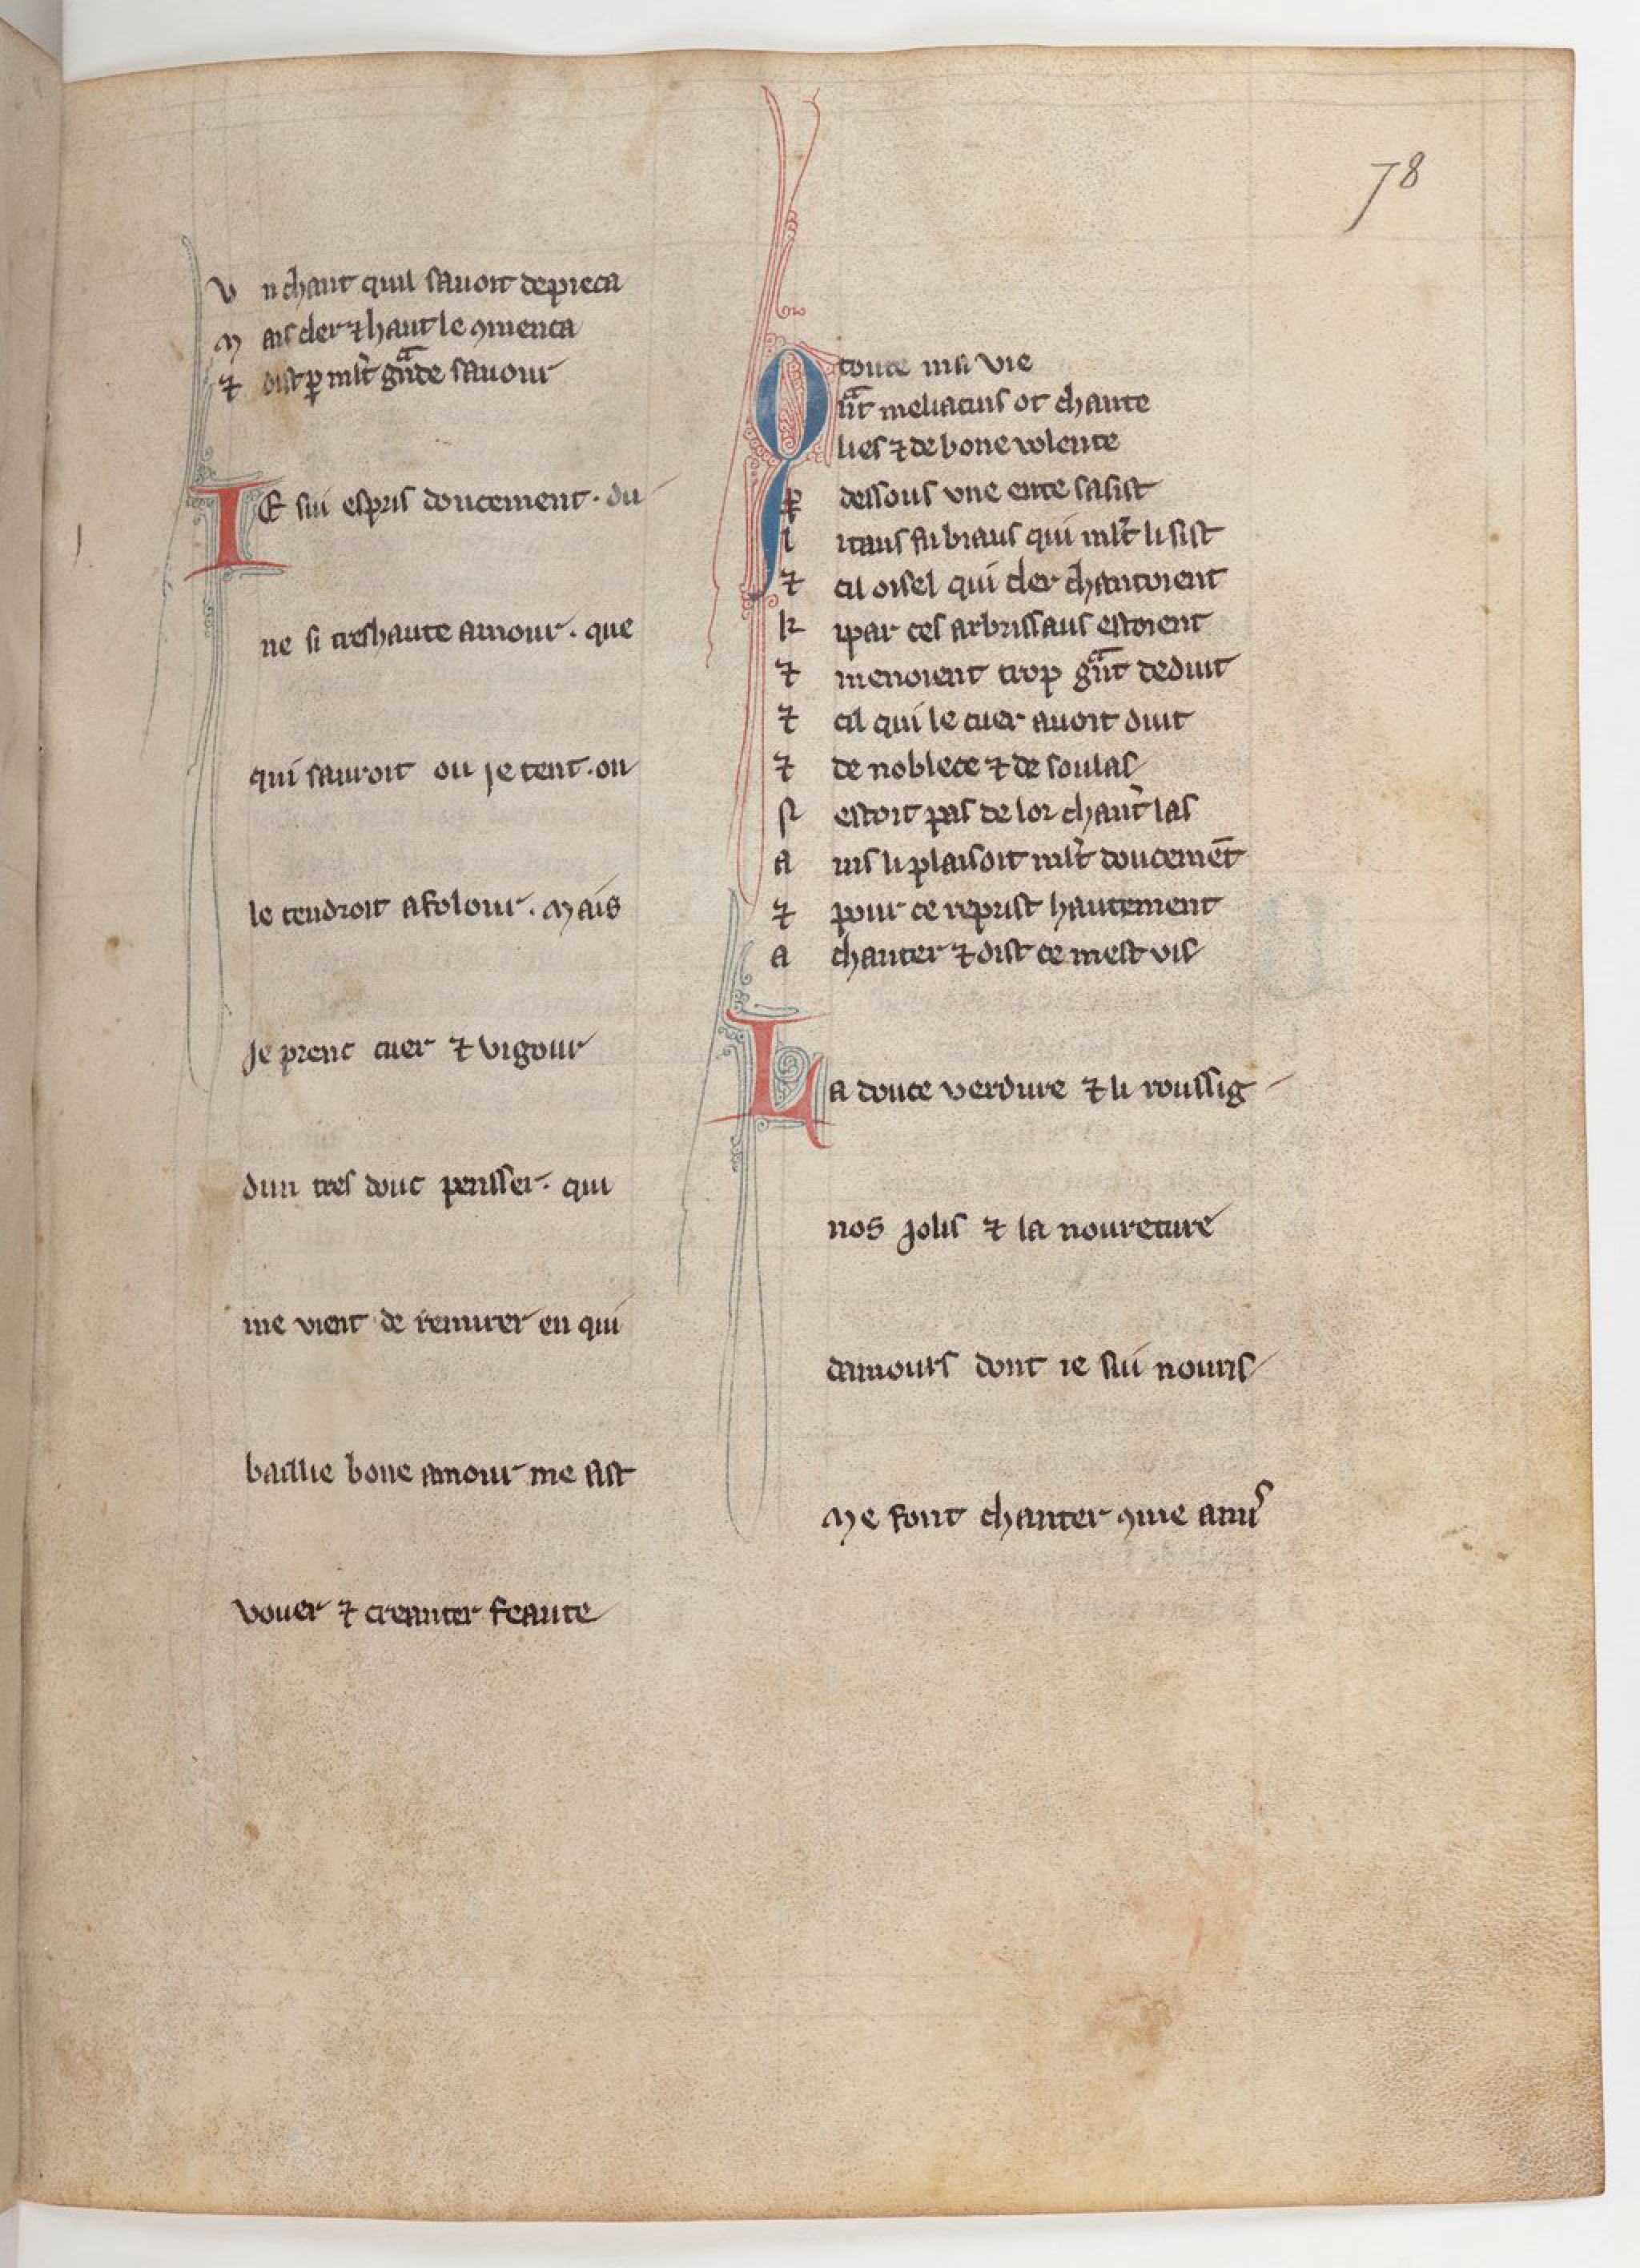 78
V n chant quil sauoit de pieca
M ais cler ⁊ haut le ꝯmenca
⁊ dist ꝑ mlt̉ gͣnde sauour
IE sui espris doucement. du
ne si treshaute amour. que
qui sauroit ou je tent. on
le tendroit a folour. Mais
je prenc cuer ⁊ vigour
dun tres douc pensser. qui
me vient de remirer en qui
baillie bone amour me fist
vouer ⁊ creanter feaute
toute ma vie
Qͣnt meliacins ot chante
lies ⁊ de bone volente
ꝑ dessous vne ente sasist
l itans fu biaus qui mlt̉ li sist
⁊ cil oisel qui cler chantoient
k ipar ces arbrissaus estoient
⁊ menoient trop gͣnt deduit
⁊ cil qui le cuer auoit duit
⁊ de noblece ⁊ de soulas
N estoit pas de lor chant̉ las
A ins li plaisoit mlt̉ doucemēt
⁊ pour ce reprist hautement
A chanter ⁊ dist ce mest vis
La douce verdure ⁊ li roussig
nos jolis ⁊ la noureture
damours dont ie sui nouris
Me font chanter ꝯme amis